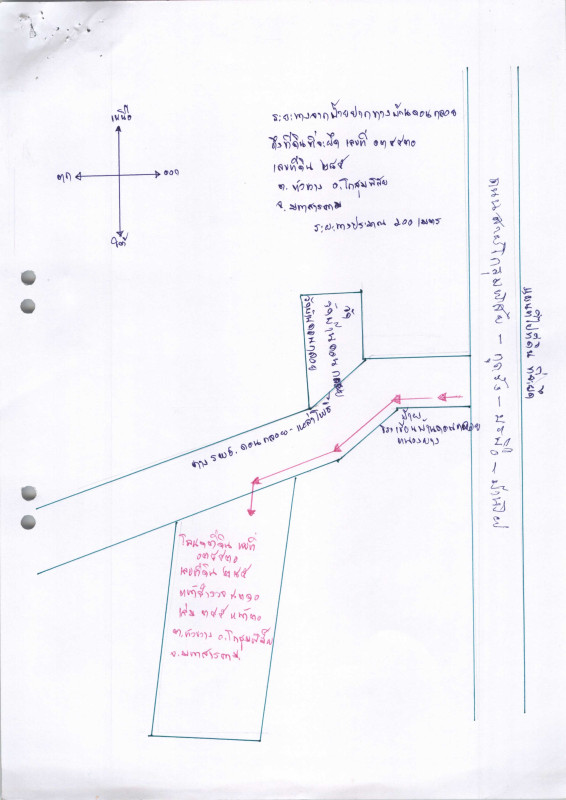 เหนือ
ตก
ออก
ใต้
ระยะทางจากป้ายปากทางบ้านดอนกลอย
ถึงที่ดินที่จะยึด เลขที่ ๓๕๔๓๐
เลขที่ดิน ๒๘๕
ต. หัวขวาง อ. โกสุมพิสัย
จ. มหาสารคาม
ระยะทางประมาณ ๒๐๐ เมตร
ถนนสายโกสุมพิสัย - กุดรัง - บรบือ -
แผนที่ไปที่ดิน ที่จะยึด
วัด
วัดบ้านดอนกลอย
ป้าย
โรงเรียนบ้านดอนกลอย
หนองยาง
ทาง รพช. ดอนกลอย - เหล่าโพธิ์
โฉนดที่ดิน เลขที่
๓๕๔๓๐
เลขที่ดิน ๒๘๕
หน้าสำรวจ
เล่ม ๓๕๕ หน้า ๓๐
ต.หัวขวาง อ.โกสุมพิสัย
จ.มหาสารคาม